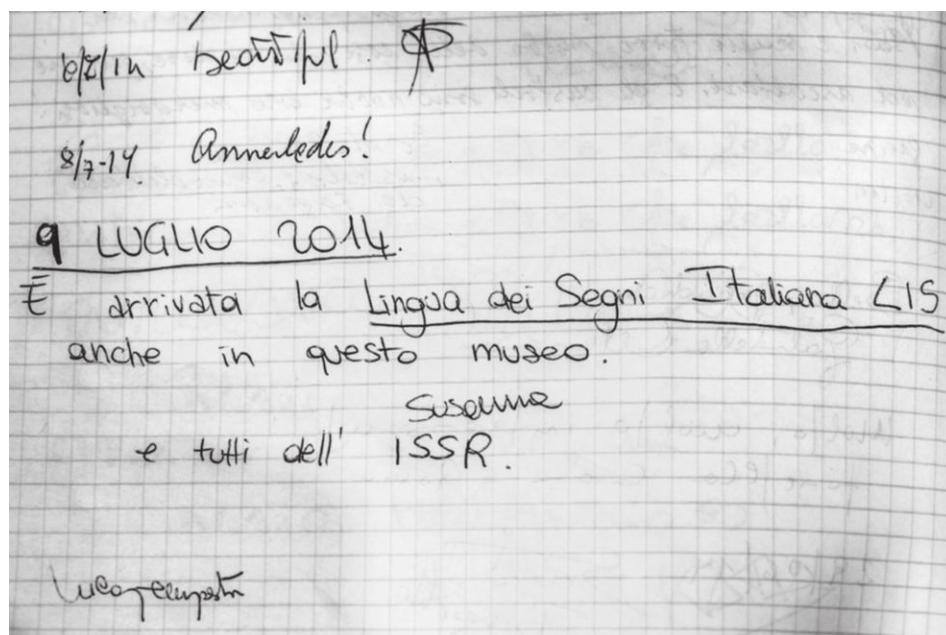 beautiful.
8/7-14.
9 LUGLIO 2014.
È arrivata la Lingua dei Segni Italiana LIS
anche in questo museo.
Susanna
e tutti dell' ISSR.